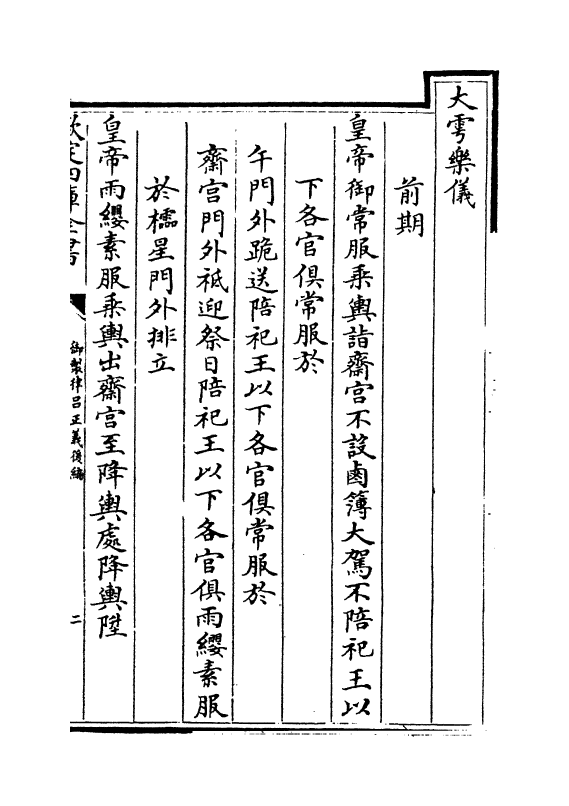 大雩樂儀
前期
皇帝御常服乘輿詣齋宫不設鹵簿大駕不陪祀王以
下各官俱常服於
午門外跪送陪祀王以下各官俱常服於
齋宫門外祗迎祭日陪祀王以下各官俱雨纓素服
於櫺星門外排立
皇帝雨纓素服乘輿出齋宫至降輿處降輿陞
欽定四庫全書
御製律吕正義後編
二